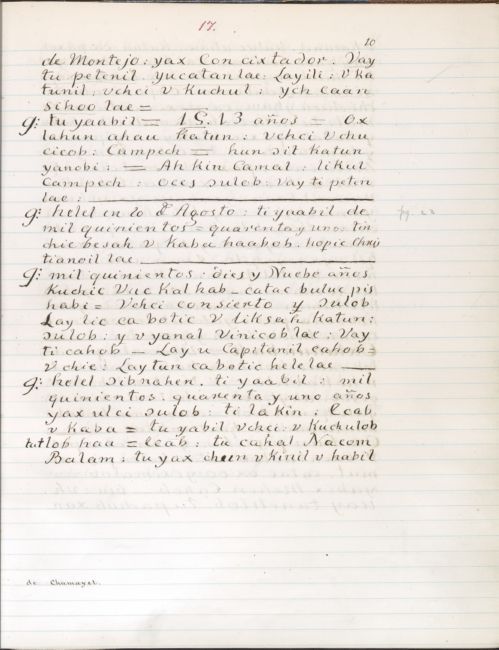 17.
20
de Montejo: yax Concixtador. Vay
tu petenil: yucatan lae: Layili: v ka
tunil: vchci v Kuchul: ych caan
sihoo lae =
9: tu yaabil = 1513 años = Ox
lahun ahau Katun: vchci v chu
cicob: Campech = hun sit Katun
yanobi: = Ah kin Camal: likul
Campech: oces sulob: vay ti peten
lae:
9: helel en 20 de Agosto: ti yaabil de
mil quinientos = quarenta y uno: tin
chicbesah v kaba haabob. hopic Chris
tianoil lae
9: mil quinientos: dies y Nuebe años
Kuchic Vuc Kal hab_catac buluc pis
habi = Vchci consierto y sulob
Lay lic ca botic v liksah katun:
sulob: y v yanal vinicob lae: Vay
ti cahob _ Lay u Capitanil cahob=
v chie: Lay tun ca botic helelae
9: helel sibnahen. ti yaabil: mil
quinientos. quarenta y uno años
yax ulci sulob: ti lakin: Ecab
v Kaba = tu yabil vchci: v Kuchulob
tut lob haa = Ecab: tu cahal Nacom
Balam: tu yax chun v kinil v habil
de Chumayel.